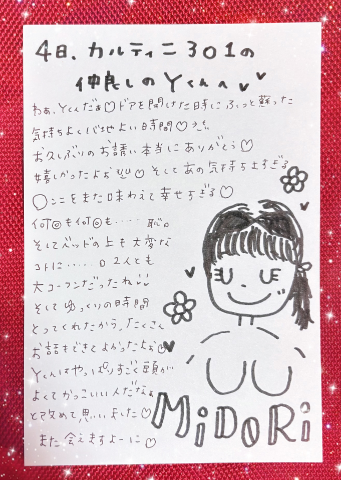 4日、カルティニ301の
仲良しのYくんへ♥♥
わぁ、Yくんだぁ♡ドアを開けた時にふっと蘇った
気持ちよく心地よい時間♡
お久しぶりのお誘い本当にありがとう♡
嬉しかったよぉ そしてあの気持ちよすぎる
○ンコをまた味わえて幸せすぎる♡
何回も何回も‥‥恥。
そしてベッドの上も大変な
コトに‥‥。2人とも
大コーフンだったね
そしてゆっくりの時間
とってくれたから、たくさん
お話もできてよかったよぉ♥
Yくんはやっぱりすごく頭が
よくてかっこいい人だなぁ
と改めて思いました♡
また会えますよーに♡
MiDORi